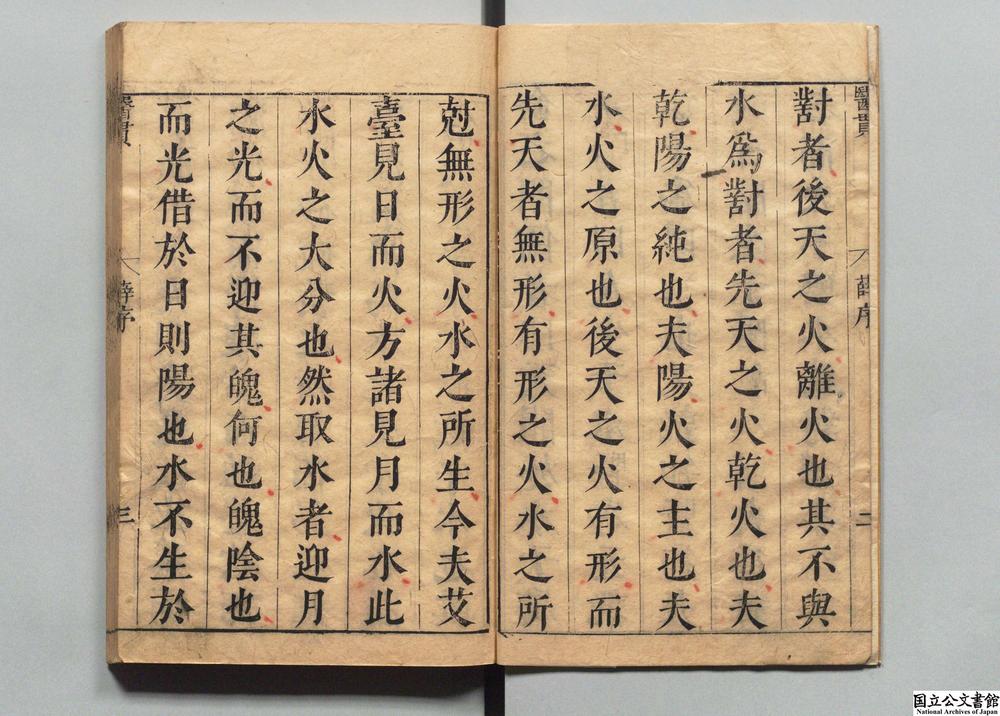 醫貫
薛序
二
對者後天之火離火也其不與
水爲對者先天之火乾火也夫
乾陽之純也夫陽火之主也夫
水火之原也後天之火有形而
先天者無形有形之火水之所
尅無形之火水之所生今夫艾
臺見日而火方諸見月而水此
水火之大分也然取水者迎月
之光而不迎其魄何也魄陰也
而光借於日則陽也水不生於
醫貫
薛序
三
国立公文書館
National Archives of Japan